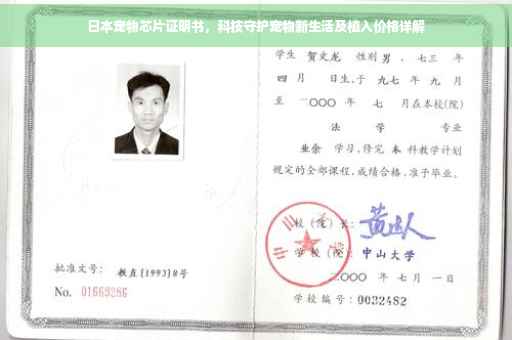 日本宠物芯片证明书，科技守护宠物新生活及植入价格详解
学生 贺文龙 性别 男 、七三 年
四 月 日生,于 九七 年 九 月
至 二〇〇〇 年 七 月在本校(院)
法 学 专业
业余 学习,修完 本 科教学计划
规定的全部课程,成绩合格,准予毕业。
校(院)长:
学校(院): 中山大学
二〇〇〇 年 七 月 一 日
批准文号: 教直(1993)8号
No. 01669286
学校编号: 0032482